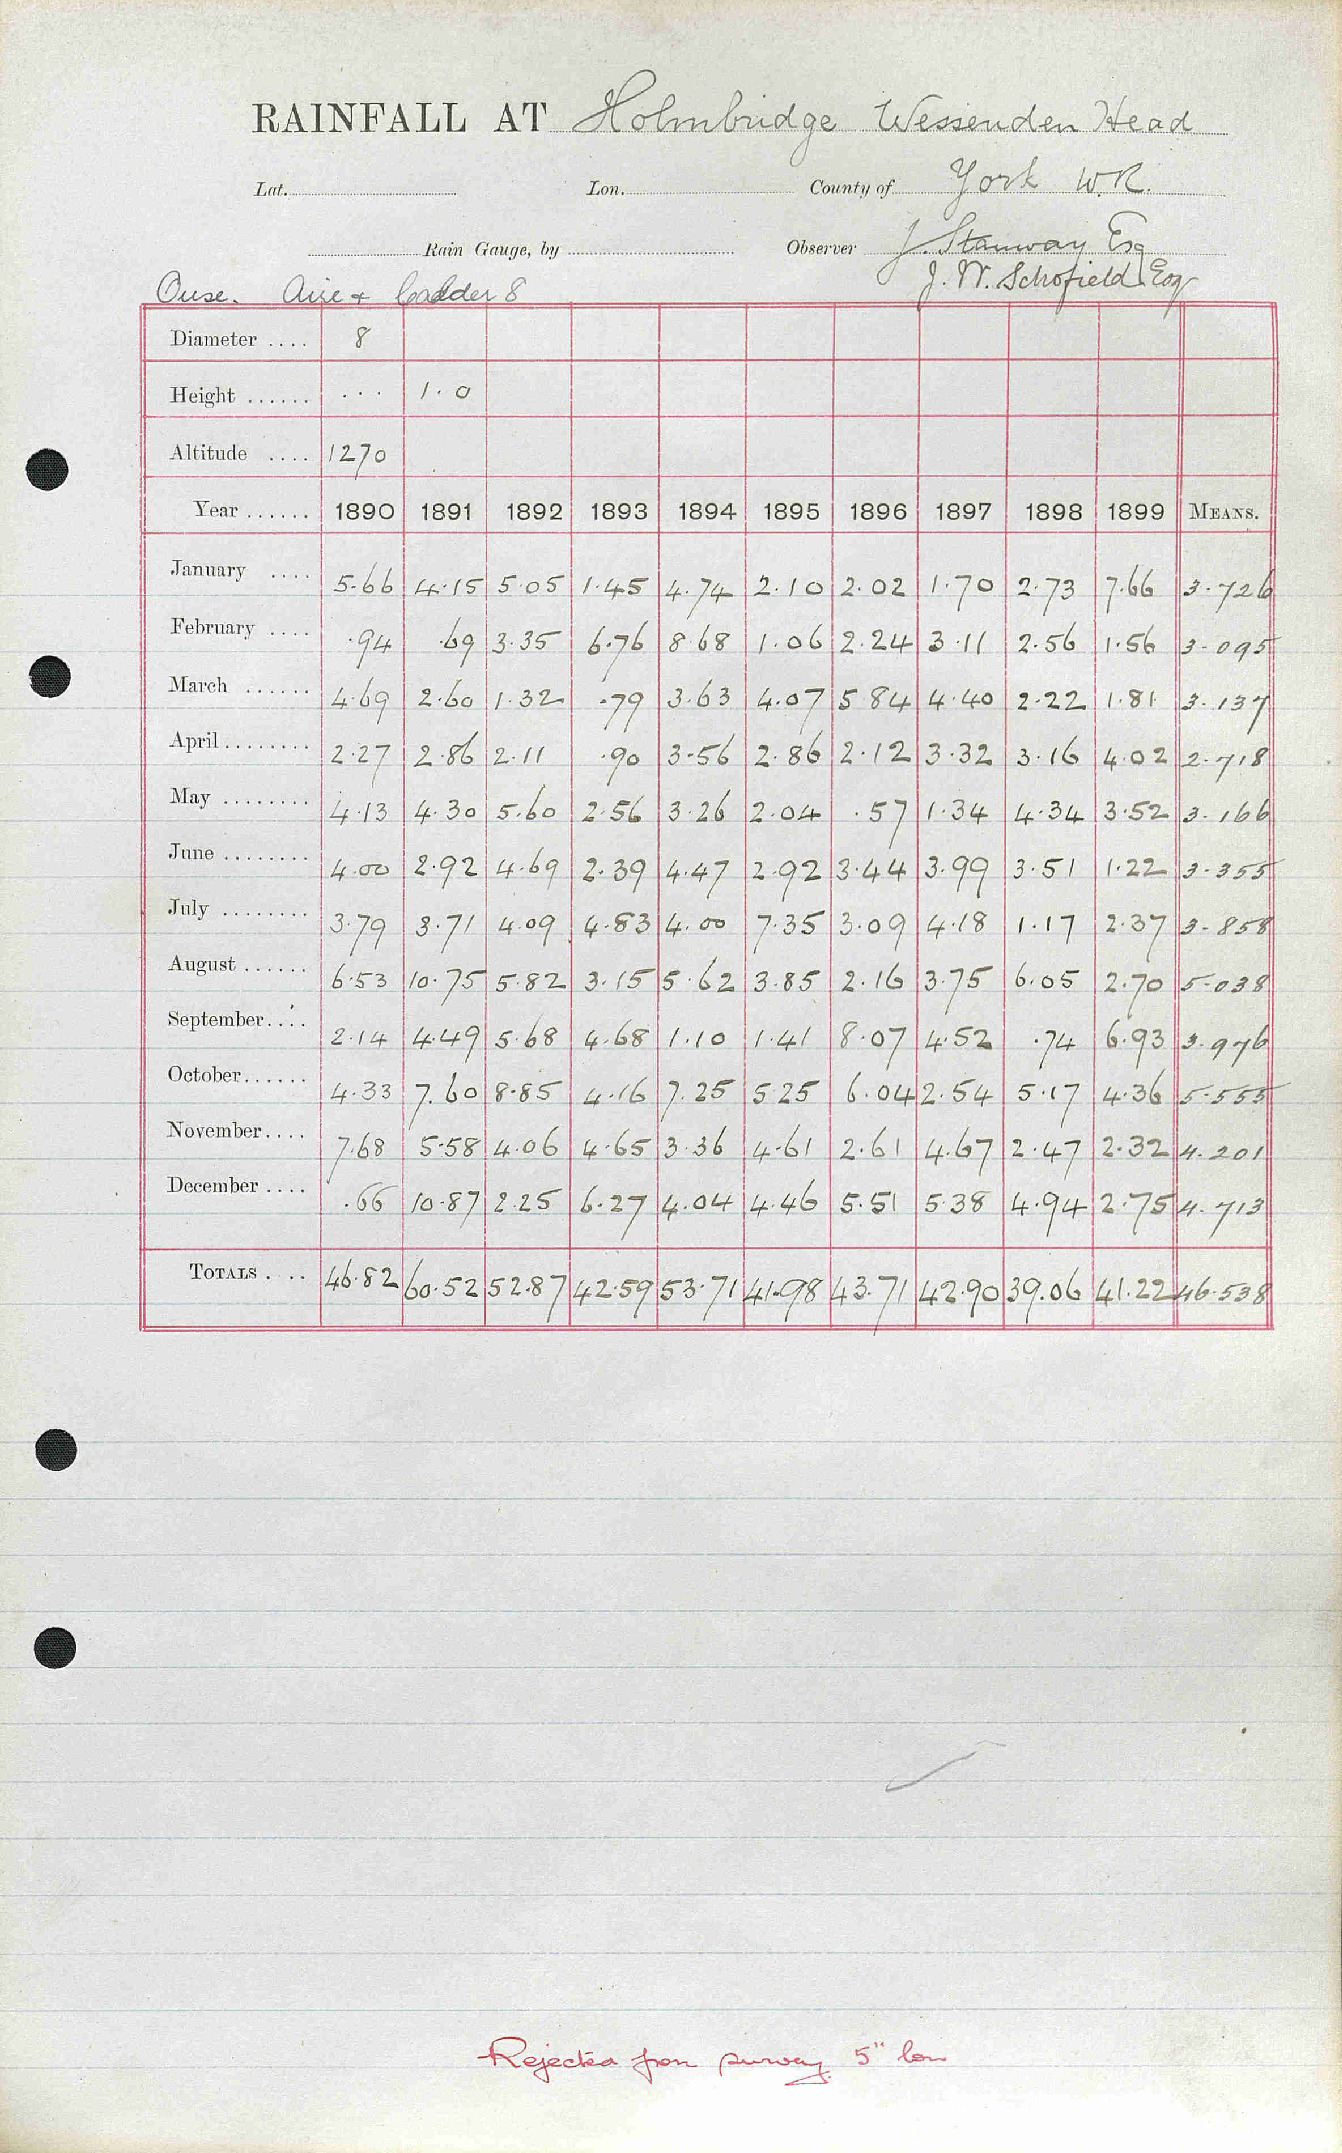 RAINFALL AT Holmbridge Wessenden Head
Lat. Lon. County of York W.R.
Rain Gauge, by Observer J. Stanway Esq
J. W. Schofield Esq
Ouse. Aire & Calder 8
Diameter .... 8
Height ...... ... 1.0
Altitude .... 1270
Year ...... 1890 1891 1892 1893 1894 1895 1896 1897 1898 1899 MEANS.
January .... 5.66 4.15 5.05 1.45 4.74 2.10 2.02 1.70 2.73 7.66 3.726
February .... .94 .69 3.35 6.76 8.68 1.06 2.24 3.11 2.56 1.56 3.095
March ...... 4.69 2.60 1.32 .79 3.63 4.07 5.84 4.40 2.22 1.81 3.137
April ........ 2.27 2.86 2.11 .90 3.56 2.86 2.12 3.32 3.16 4.02 2.718
May ........ 4.13 4.30 5.60 2.56 3.26 2.04 .57 1.34 4.34 3.52 3.166
June ........ 4.00 2.92 4.69 2.39 4.47 2.92 3.44 3.99 3.51 1.22 3.355
July ........ 3.79 3.71 4.09 4.83 4.00 7.35 3.09 4.18 1.17 2.37 3.858
August ...... 6.53 10.75 5.82 3.15 5.62 3.85 2.16 3.75 6.05 2.70 5.038
September.... 2.14 4.49 5.68 4.68 1.10 1.41 8.07 4.52 .74 6.93 3.976
October...... 4.33 7.60 8.85 4.16 7.25 5.25 6.04 2.54 5.17 4.36 5.555
November.... 7.68 5.58 4.06 4.65 3.36 4.61 2.61 4.67 2.47 2.32 4.201
December .... .66 10.87 2.25 6.27 4.04 4.46 5.51 5.38 4.94 2.75 4.713
TOTALS .... 46.82 60.52 52.87 42.59 53.71 41.98 43.71 42.90 39.06 41.22 46.538
Rejected from survey 5" low